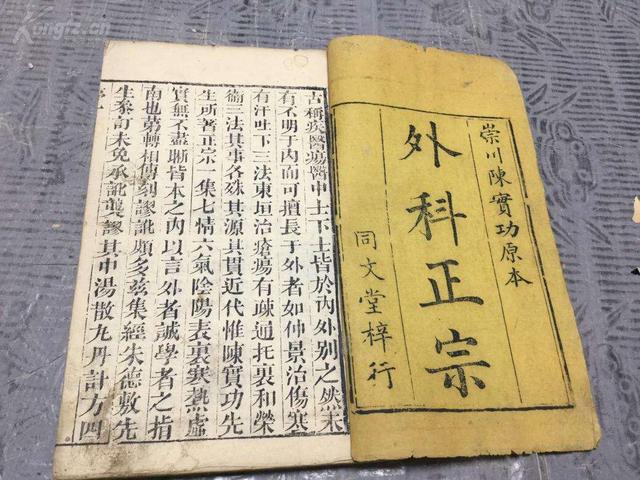 崇川陳實功原本
外科正宗
同文堂梓行
古稱疾醫瘍醫中士下士皆於內外別之然未
有不明于內而可擅長于外者如仲景治傷寒
有汗吐下三法東垣治瘡瘍有疎通托裏和榮
衞三法其事各殊其源其貫近代惟陳實功先
生所著正宗一集七情六氣陰陽表裏寒熱虛
實無不盡晰皆本之內以言外者誠學者之指
南也第轉相傳刻謬訛頗多茲集經朱德敷先
生參訂未免承訛襲謬其中湯散九丹計方四
Kongfz.cn